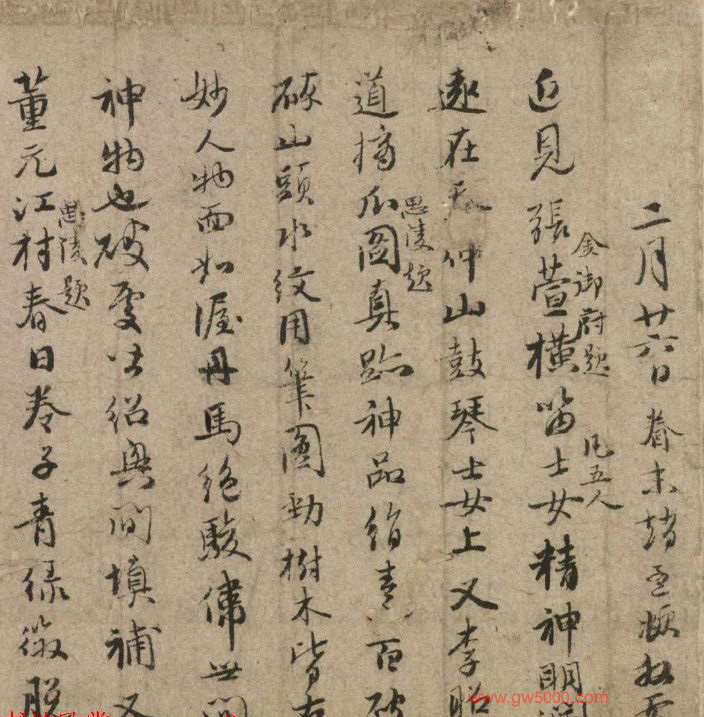 二月廿六日眷末趙孟頫拜
近見張萱橫笛士女精神明
金御府題
凡五人
遠在仲山鼓琴士女上又李昭
道摘瓜圖真跡神品絹素百破
思陵題
碎山頭水紋用筆圓勁樹木皆古
妙人物面如渥丹馬絕駿偉世間
神物也破處皆紹興間填補又
董元江村春日卷子青綠微脫
思陵題
www.gw5000.com